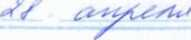 28 апреля